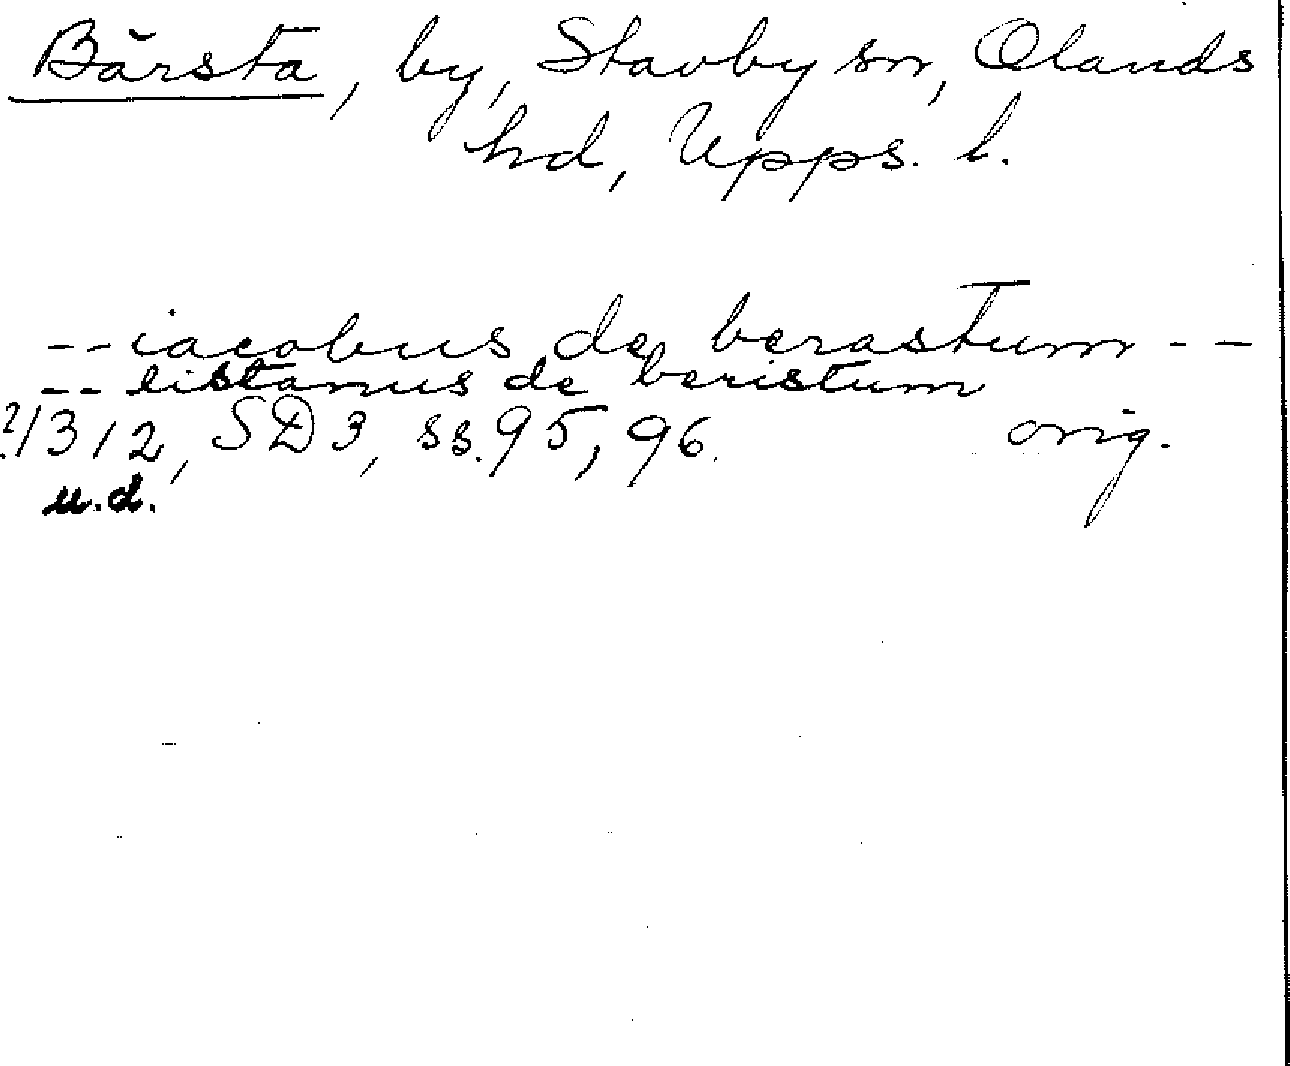 Bärsta, by, Stavby sn, Olands
hd, Upps. l.
--iacobus de berastum--
-- eistanus de beristum
?/312, SD3, ss. 95, 96. orig.
u.d.